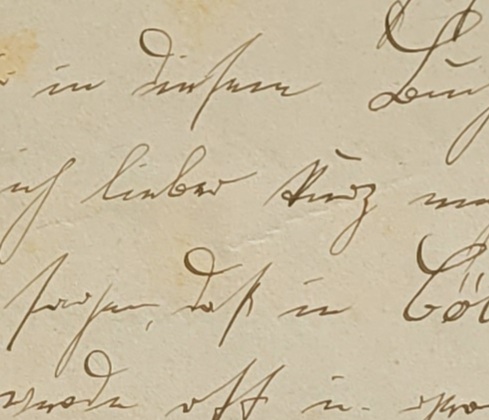 in diesem
ich lieber kurz
sagen, daß in Cö
wurde oft u.